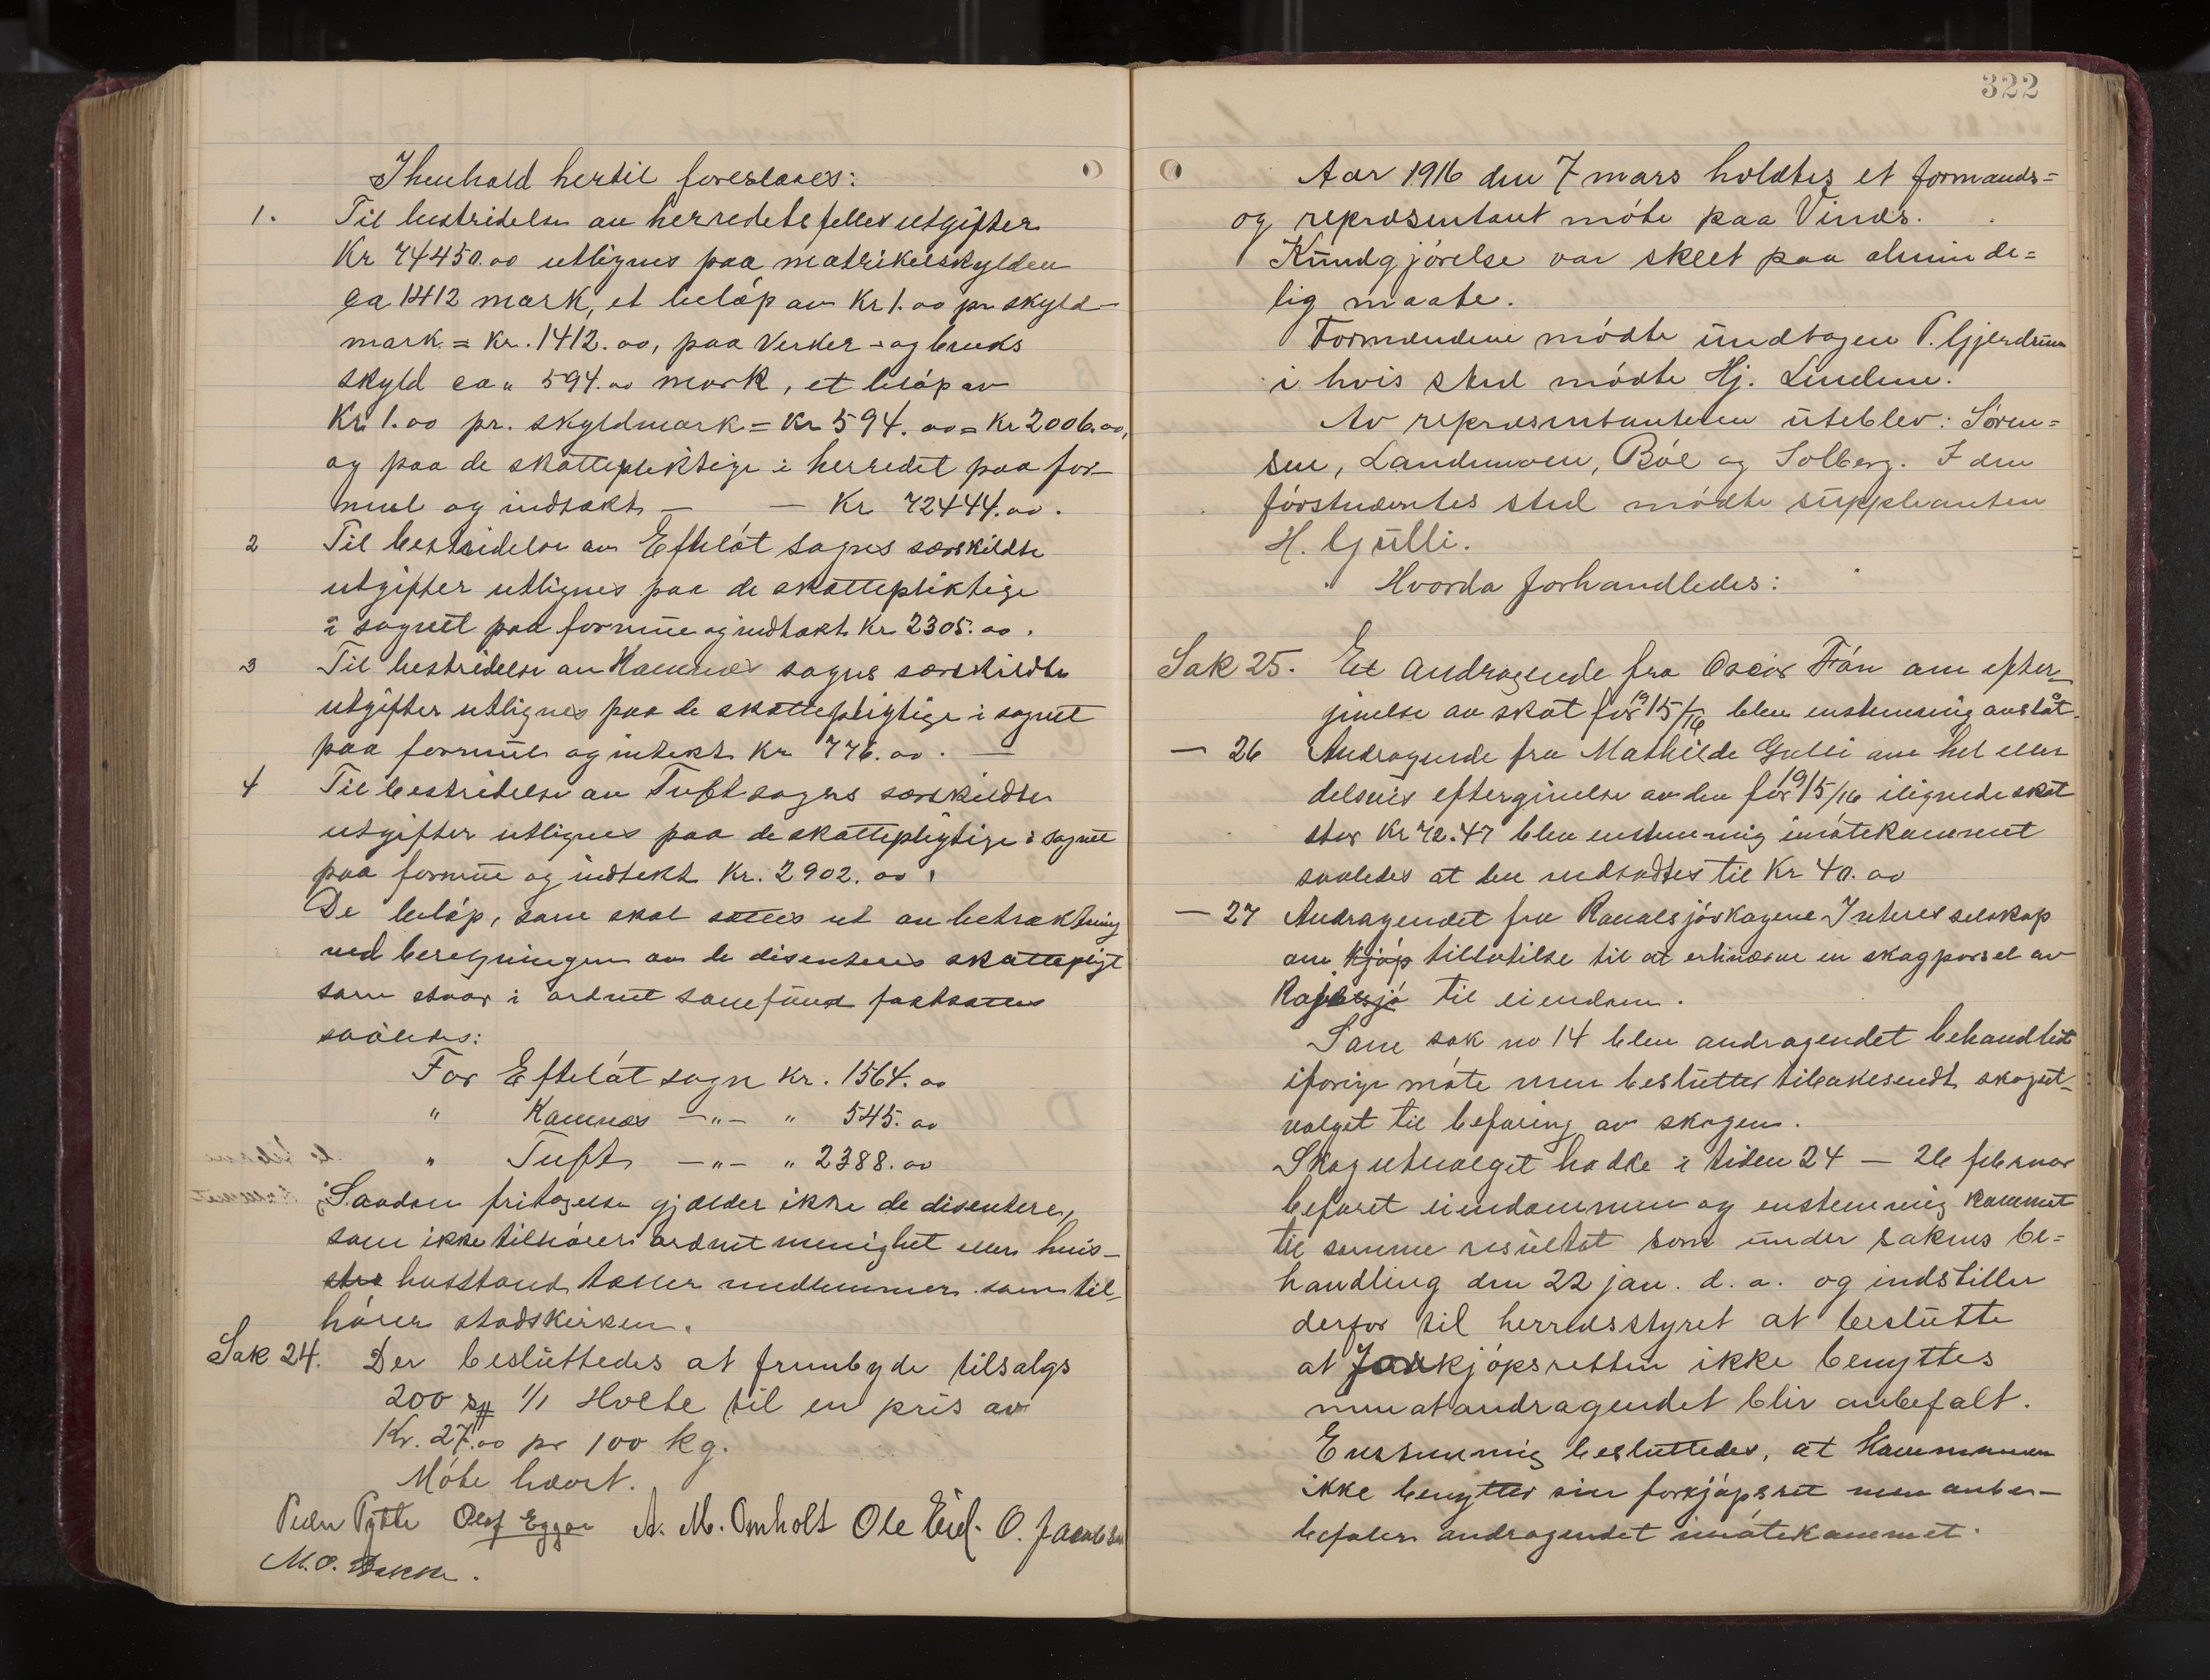 I henhold hertil foreslaaes:
1. Til bestridelse av herredets fellesutgifter
Kr 74450.00 utlignes paa matrikelskylden
ca 1412 mark, et beløp av Kr 1.00 pr skyld-
mark = Kr. 1412.00, paa Verker- og bruks
skyld ca " 594.00 mark, et beløp av
Kr 1.00 pr. skyldmark = Kr 594.00 = Kr 2006.00,
og paa de skattepliktige i herredet paa for-
mue og indtækt — — Kr 72444.00.
2 Til bestridelse av Efteløt sogns særskildte
utgifter utlignes paa de skattepliktige
i sognet paa formue og indtækt Kr 2305.00.
3 Til bestridelse av Komnes sogns særskildte
utgifter utlignes paa de skattepligtige i sognet
paa formue og intekt Kr 776.00. —
4 Til bestridelse av Tuft sogns særskildte
utgifter utlignes paa de skattepligtige i sognet
paa formue og indtekt Kr. 2902.00.
De beløp, som skal sættes ut av betraktning
ved beregningen av de disenteres skattepligt
som staar i ordnet samfund fastsættes
saaledes:
For Efteløt sogn Kr. 1564.00
" Komnes —"— " 545.00
" Tuft —"— " 2388.00
Saadan fritagelse gjælder ikke de disentere,
som ikke tilhører ordnet menighet eller hvis-
husstand tæller medlemmer som til-
hører statskirken.
Sak 24. Der besluttedes at frembyde tilsalgs
200 1/1 Hvete til en pris av
Kr. 27.00 pr 100 kg.
Møte hævet.
Peder Pytte Olaf Eggar A. M. Omholt Ole Eid. O. Jacobsen
M. O. Bakke.
322
Aar 1916 den 7 mars holdtes et formands=
og repræsentant møte paa Vinæs.
Kundgjørelse var skeet paa alminde=
lig maate.
Formændene mødte undtagen P. Gjerdrum
i hvis sted mødte Hj. Lindem.
Av repræsentanterne uteblev: Søren=
sen, Landemoen, Bøe og Solberg. I den
førstnævntes sted mødte suppleanten
H. Gulli.
Hvorda forhandledes:
Sak 25. Et andragende fra Oscar Frán om efter-
givelse av skat for 1915/16 blev enstemmig avslåt.
— 26 Andragende fra Mathilde Gulli om hel eller
delsvis eftergivelse av den for 1915/16 ilignede skat
stor Kr 72.47 blev enstemmig imøtekommet
saaledes at den nedsattes til Kr 40.00
— 27 Andragendet fra Ravalsjøskogene Interesselskap
om kjøp tillatelse til at erhverve en skogparsel av
Ravalsjø til eiendom.
Som sak no 14 blev andragendet behandlet
i forrige møte men besluttes tilbakesendt skogut-
valget til befaring av skogen.
Skogutvalget hadde i tiden 24 — 26 februar
befaret eiendommen og enstemmig kommet
til samme resultat som under sakens be=
handling den 22 jan. d. a. og indstiller
derfor til herredsstyret at beslutte
at forkjøpsretten ikke benyttes
men at andragendet blir anbefalt.
Enstemmig besluttedes, at kommunen
ikke benytter sin forkjøpsret men anbe-
befaler andragendet imøtekommet.